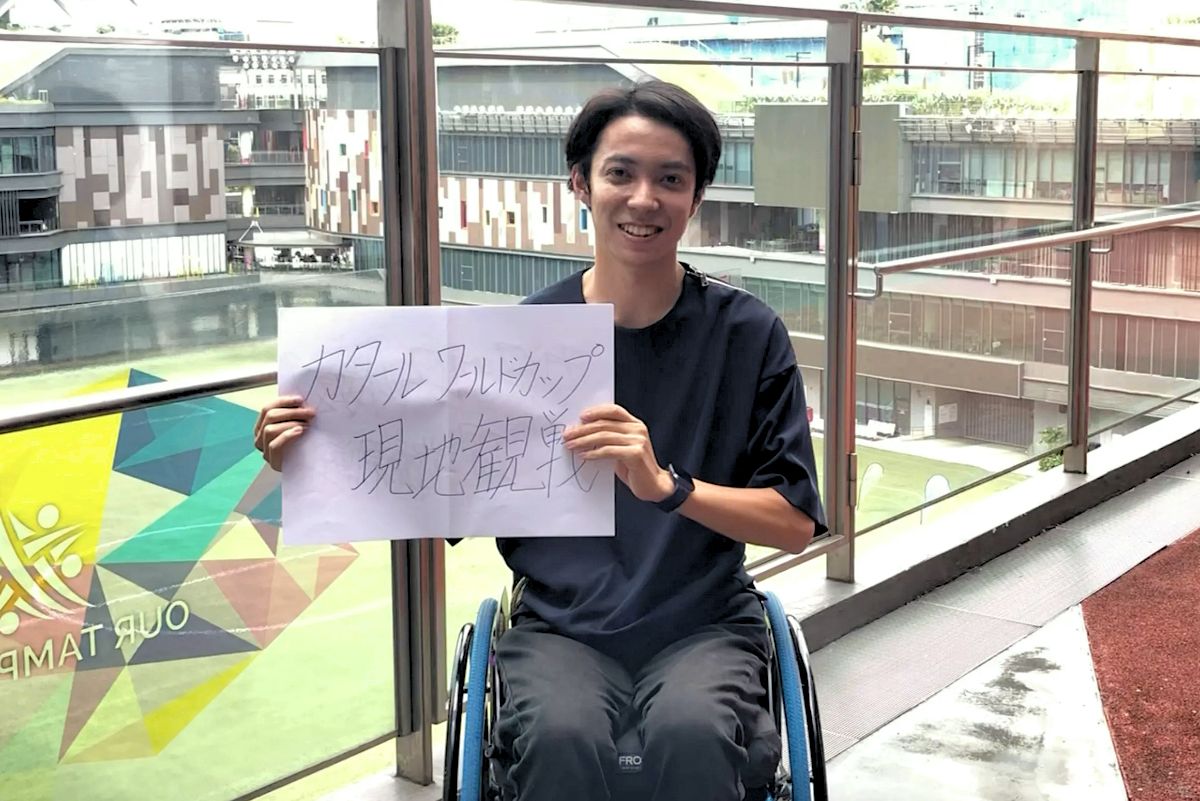 カタール ワールドカップ
現地観戦
OUR TAMP
FRO